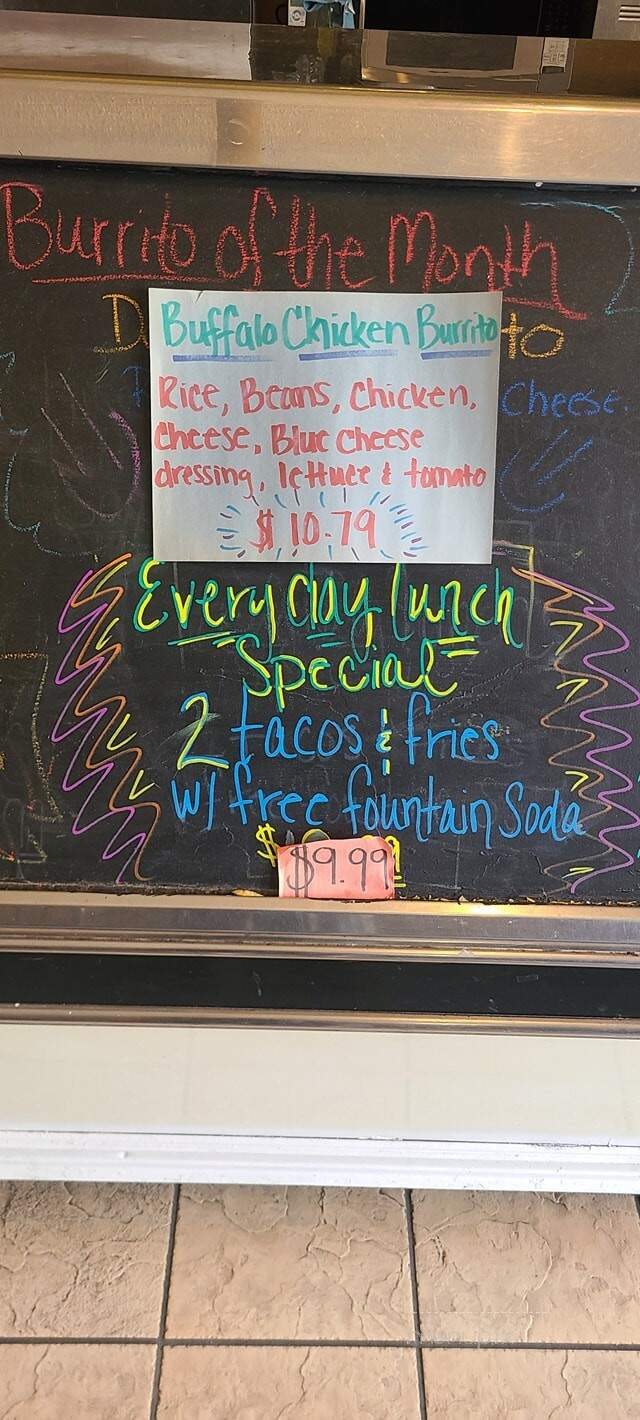 Burrito of the Month
Buffalo Chicken Burrito
Rice, Beans, Chicken,
Cheese.
Cheese, Blue Cheese
dressing, lettuce & tomato
$ 10.79
Every day lunch
Special
2 tacos & fries
w/ free fountain Soda
$9.99